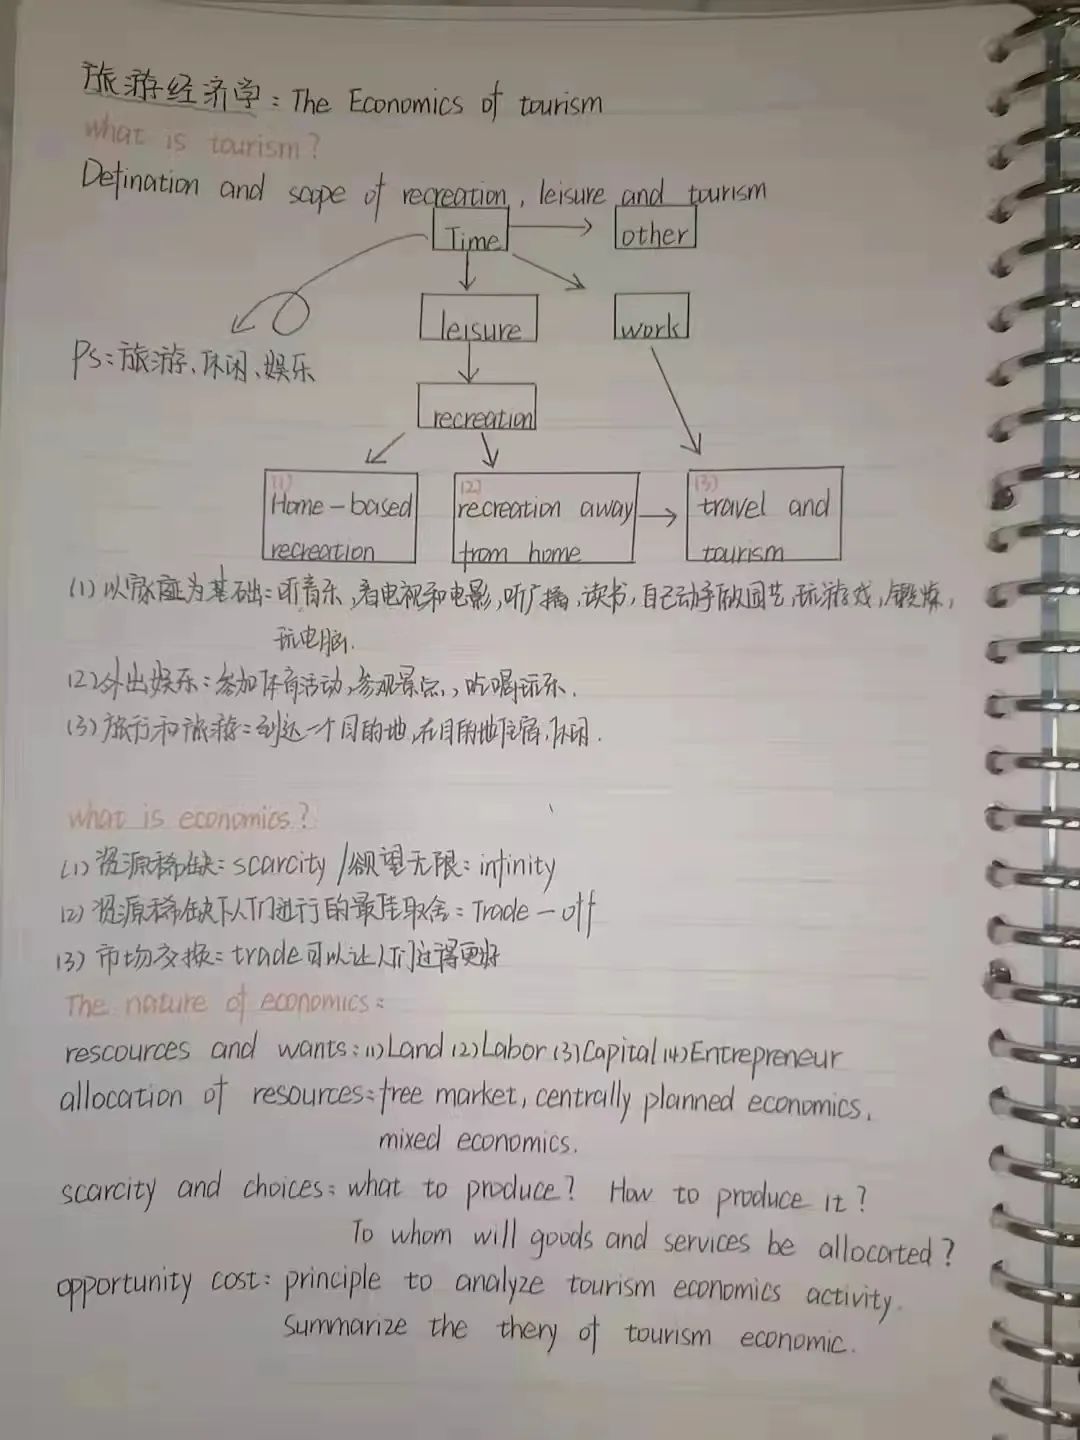 旅游经济学: The Economics of tourism
what is tourism?
Defination and scope of recreation, leisure and tourism
Time
other
leisure
work
Ps: 旅游、休闲、娱乐
recreation
(1)
Home-based
recreation
(2)
recreation away
from home
(3)
travel and
tourism
(1) 以家庭为基础: 听音乐,看电视和电影,听广播,读书,自己动手做园艺,玩游戏,锻炼,
玩电脑.
(2) 外出娱乐: 参加体育活动,参观景点,吃喝玩乐.
(3) 旅行和旅游: 到达一个目的地,在目的地住宿,休闲.
what is economics?
(1) 资源稀缺: scarcity /欲望无限: infinity
(2) 资源稀缺下人们进行的最佳取舍: Trade-off
(3) 市场交换: trade可以让人们过得更好
The nature of economics:
rescources and wants: (1)Land (2)Labor (3)Capital (4)Entrepreneur
allocation of resources: free market, centrally planned economics,
mixed economics.
scarcity and choices: what to produce? How to produce it?
To whom will goods and services be allocated?
opportunity cost: principle to analyze tourism economics activity.
Summarize the thery of tourism economic.